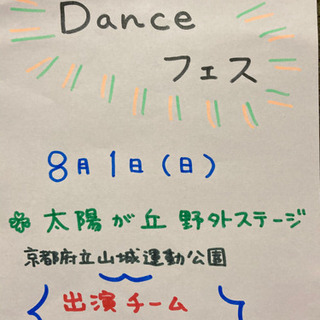 Dance
フェス
8月1日(日)
太陽が丘 野外ステージ
京都府立山城運動公園
出演チーム